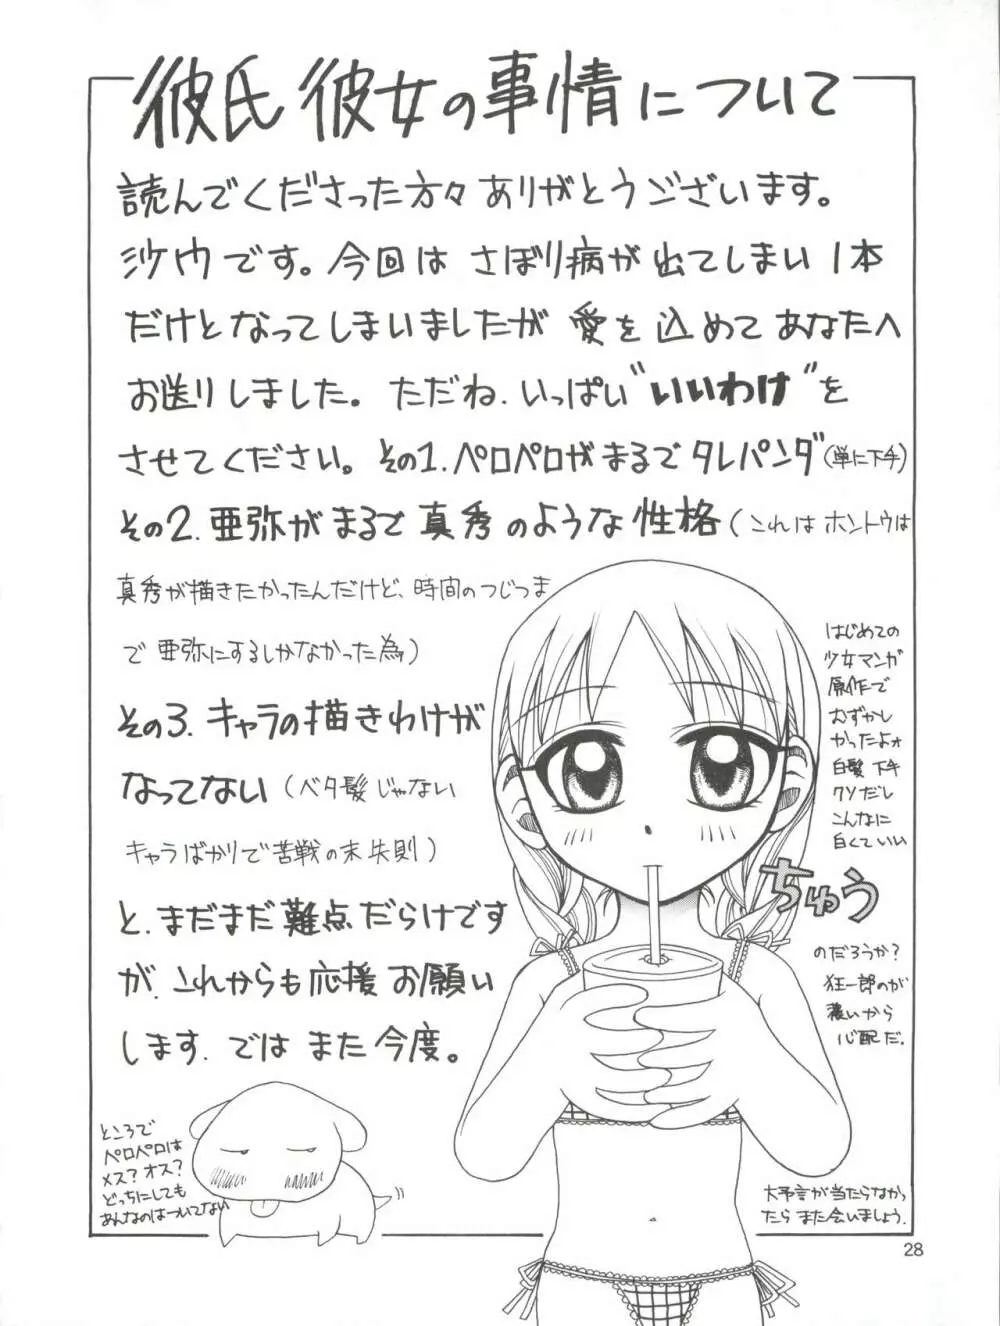 彼氏彼女の事情について
読んでくださった方々ありがとうございます。
沙ケウです。今回は さぼり病が出てしまい1本
だけとなってしまいましたが 愛を込めてあなたへ
お送りしました。ただね.いっぱい"いいわけ"を
させてください。その1.ペロペロがまるでタレパンダ(単に下手)
その2.亜弥がまるで真秀のような性格(これはホントウは
真秀が描きたかったんだけど、時間のつじつま
で亜弥にするしかなかった為)
その3.キャラの描きわけが
なってない(ベタ髪じゃない
キャラばかりで苦戦の末失則)
と.まだまだ難点だらけです
が.これからも応援お願い
します.ではまた今度。
はじめての
少女マンガ
原作で
むずかし
かったよォ
白髪下手
クソだし
こんなに
白くていい
のだろうか?
狂一郎のが
濃いから
心配だ.
ちゅう
ところで
ペロペロは
メス?オス?
どっちにしても
あんなのはついてない
大予言が当たらなかっ
たらまた会いましょう.
28